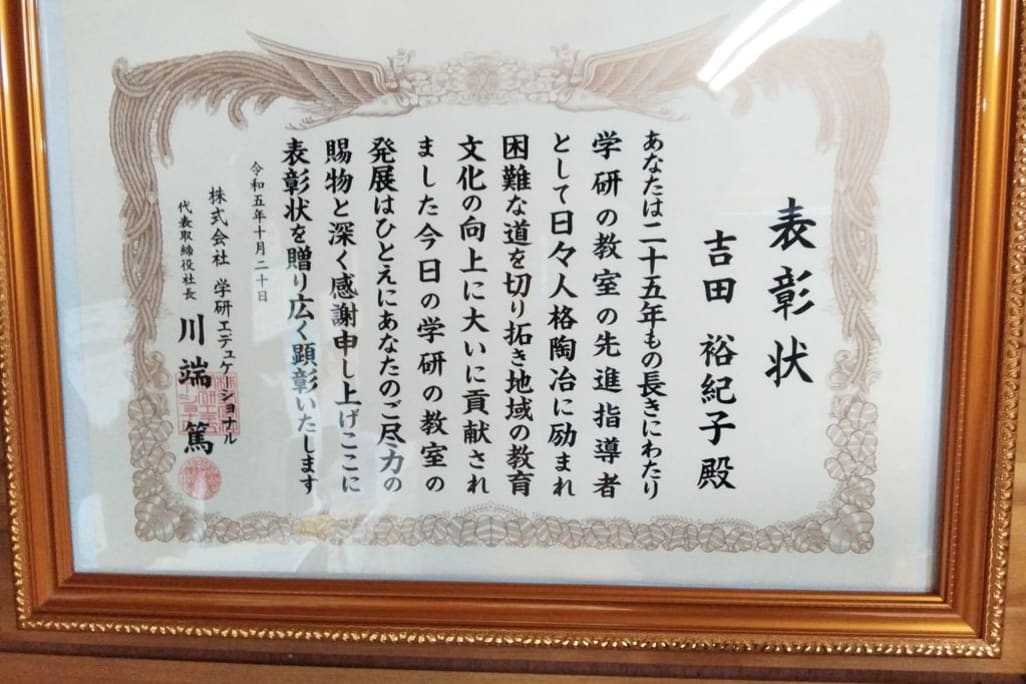 表彰状
吉田 裕紀子 殿
あなたは二十五年もの長きにわたり
学研の教室の先進指導者
として日々人格陶冶に励まれ
困難な道を切り拓き地域の教育
文化の向上に大いに貢献され
ました今日の学研の教室の
発展はひとえにあなたのご尽力の
賜物と深く感謝申し上げここに
表彰状を贈り広く顕彰いたします
令和五年十月二十日
株式会社 学研エデュケーショナル
代表取締役社長 川端 篤